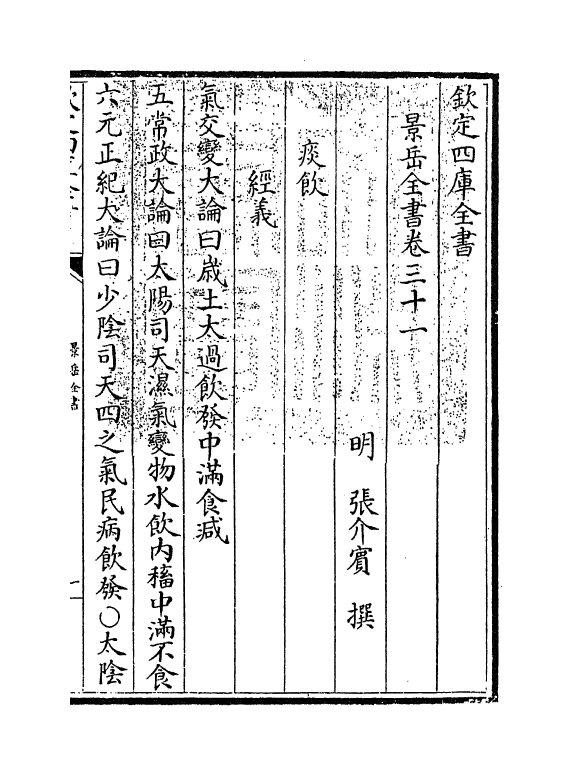 欽定四庫全書
景岳全書卷三十一
明 張介賓 撰
痰飲
經義
氣交變大論曰歳土太過飲發中滿食减
五常政大論曰太陽司天濕氣變物水飲内穑中滿不食
六元正紀大論曰少陰司天四之氣民病飲發○太陰
景岳全書
一